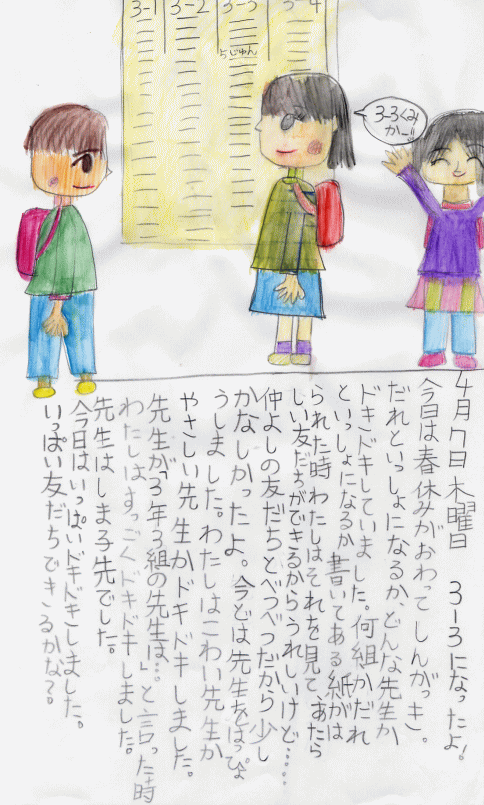 3-1 3-2 3-3 3-4
3-3くみ
かー!!
4月7日木曜日 3-3になったよ!
今日は春休みがおわってしんがっき。
だれといっしょになるか、どんな先生か
ドキドキしていました。何組かだれ
といっしょになるか 書いてある紙がは
られた時わたしはそれを見て、あたら
しい友だちができるからうれしいけど……
仲よしの友だちとべつべつだから少し
かなしかったよ。今どは先生をはっぴょ
うしました。わたしはこわい先生か
やさしい先生かドキドキしました。
先生が「3年3組の先生は…」と言った時
わたしはすっごくドキドキしました。
先生はしま子先でした。
今日はいっぱいドキドキしました。
いっぱい友だちできるかな?。